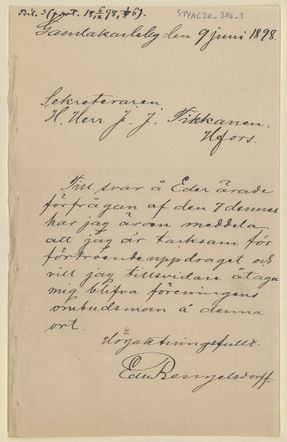 STYAC20_206_1
Gamlakarleby den 9 juni 1898.
Sekreteraren
H. Herr J. J. Tikkanen.
Hfors.
Till svar å Eder ärade
förfrågan af den 7 dennes
har jag äran meddela
att jag är tacksam för
förtroendeuppdraget och
vill jag tillsvidare åtaga
mig blifva föreningens
ombudsman å denna
ort.
Högaktningsfullt